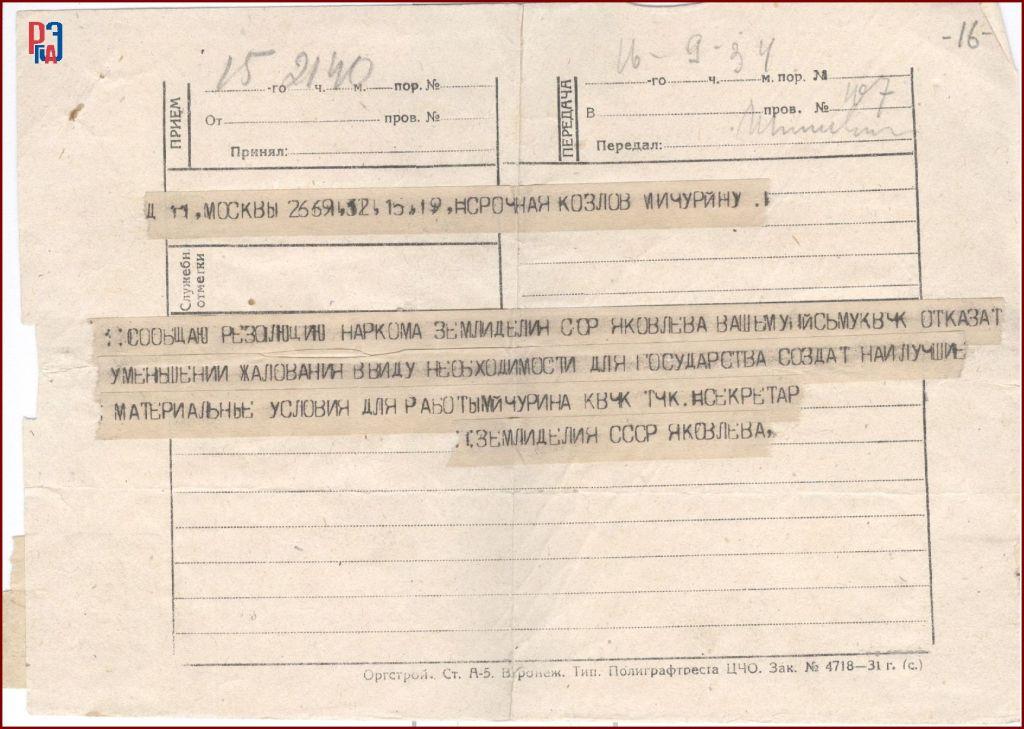 РГАЭ
-16-
15 2140
16 - 9 - 34
-го ч. м. пор. №
-го ч. м. пор. №
ПРИЕМ
ПЕРЕДАЧА
От пров. №
В пров. №
Принял:
Передал:
МОСКВЫ 2669, 32, 15, 19, НСРОЧНАЯ КОЗЛОВ МИЧУРИНУ .
Служебн. отметки
СООБЩАЮ РЕЗОЛЮЦИЮ НАРКОМА ЗЕМЛИДЕЛИЯ ССР ЯКОВЛЕВА ВАШЕМУ ПИСЬМУ КВЧК ОТКАЗАТ
УМЕНЬШЕНИИ ЖАЛОВАНИЯ ВВИДУ НЕОБХОДИМОСТИ ДЛЯ ГОСУДАРСТВА СОЗДАТ НАИЛУЧШИЕ
МАТЕРИАЛЬНЫЕ УСЛОВИЯ ДЛЯ РАБОТЫ МИЧУРИНА КВЧК ТЧК. НСЕКРЕТАР
ЗЕМЛИДЕЛИЯ СССР ЯКОВЛЕВА,
Оргстрой. Ст. А-5. Воронеж. Тип. Полиграфтреста ЦЧО. Зак. № 4718—31 г. (с.)